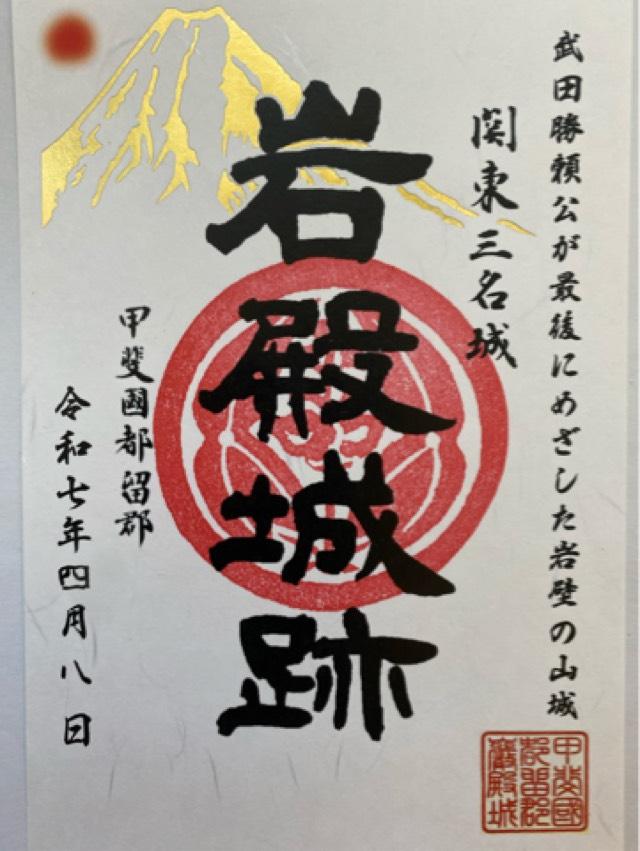 武田勝頼公が最後にめざした岩壁の山城
関東三名城
岩殿城跡
甲斐國都留郡
令和七年四月八日
甲斐國
都留郡
巖殿城